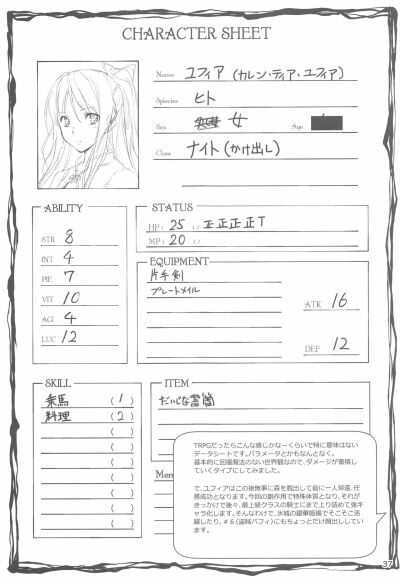 CHARACTER SHEET
Name ユフィア (カレン・ティア・ユフィア)
Spieces ヒト
Sex 女 Age
Class ナイト (かけ出し)
ABILITY
STR 8
INT 4
PIE 7
VIT 10
AGI 4
LUC 12
STATUS
HP: 25 / 正正正正T
MP: 20 /
EQUIPMENT
片手剣
プレートメイル
ATK 16
DEF 12
SKILL
乗馬 (1)
料理 (2)
ITEM
だいじな書簡
TRPGだったらこんな感じかなーくらいで特に意味はない
データシートです。パラメータとかもなんとなく。
基本的に回復魔法のない世界観なので、ダメージが蓄積し
ていくタイプにしてみました。
で、ユフィアはこの後無事に森を脱出して砦に一人帰還、任
務成功となります。今回の副作用で特殊体質となり、それが
きっかけで後々、最上級クラスの騎士にまで上り詰めて強キ
ャラ化します。そんなわけで、氷城の銀華姫編でそこそこ活
躍したり、#6(盗賊パフィ)にもちょっとだけ顔出ししていま
す。
37